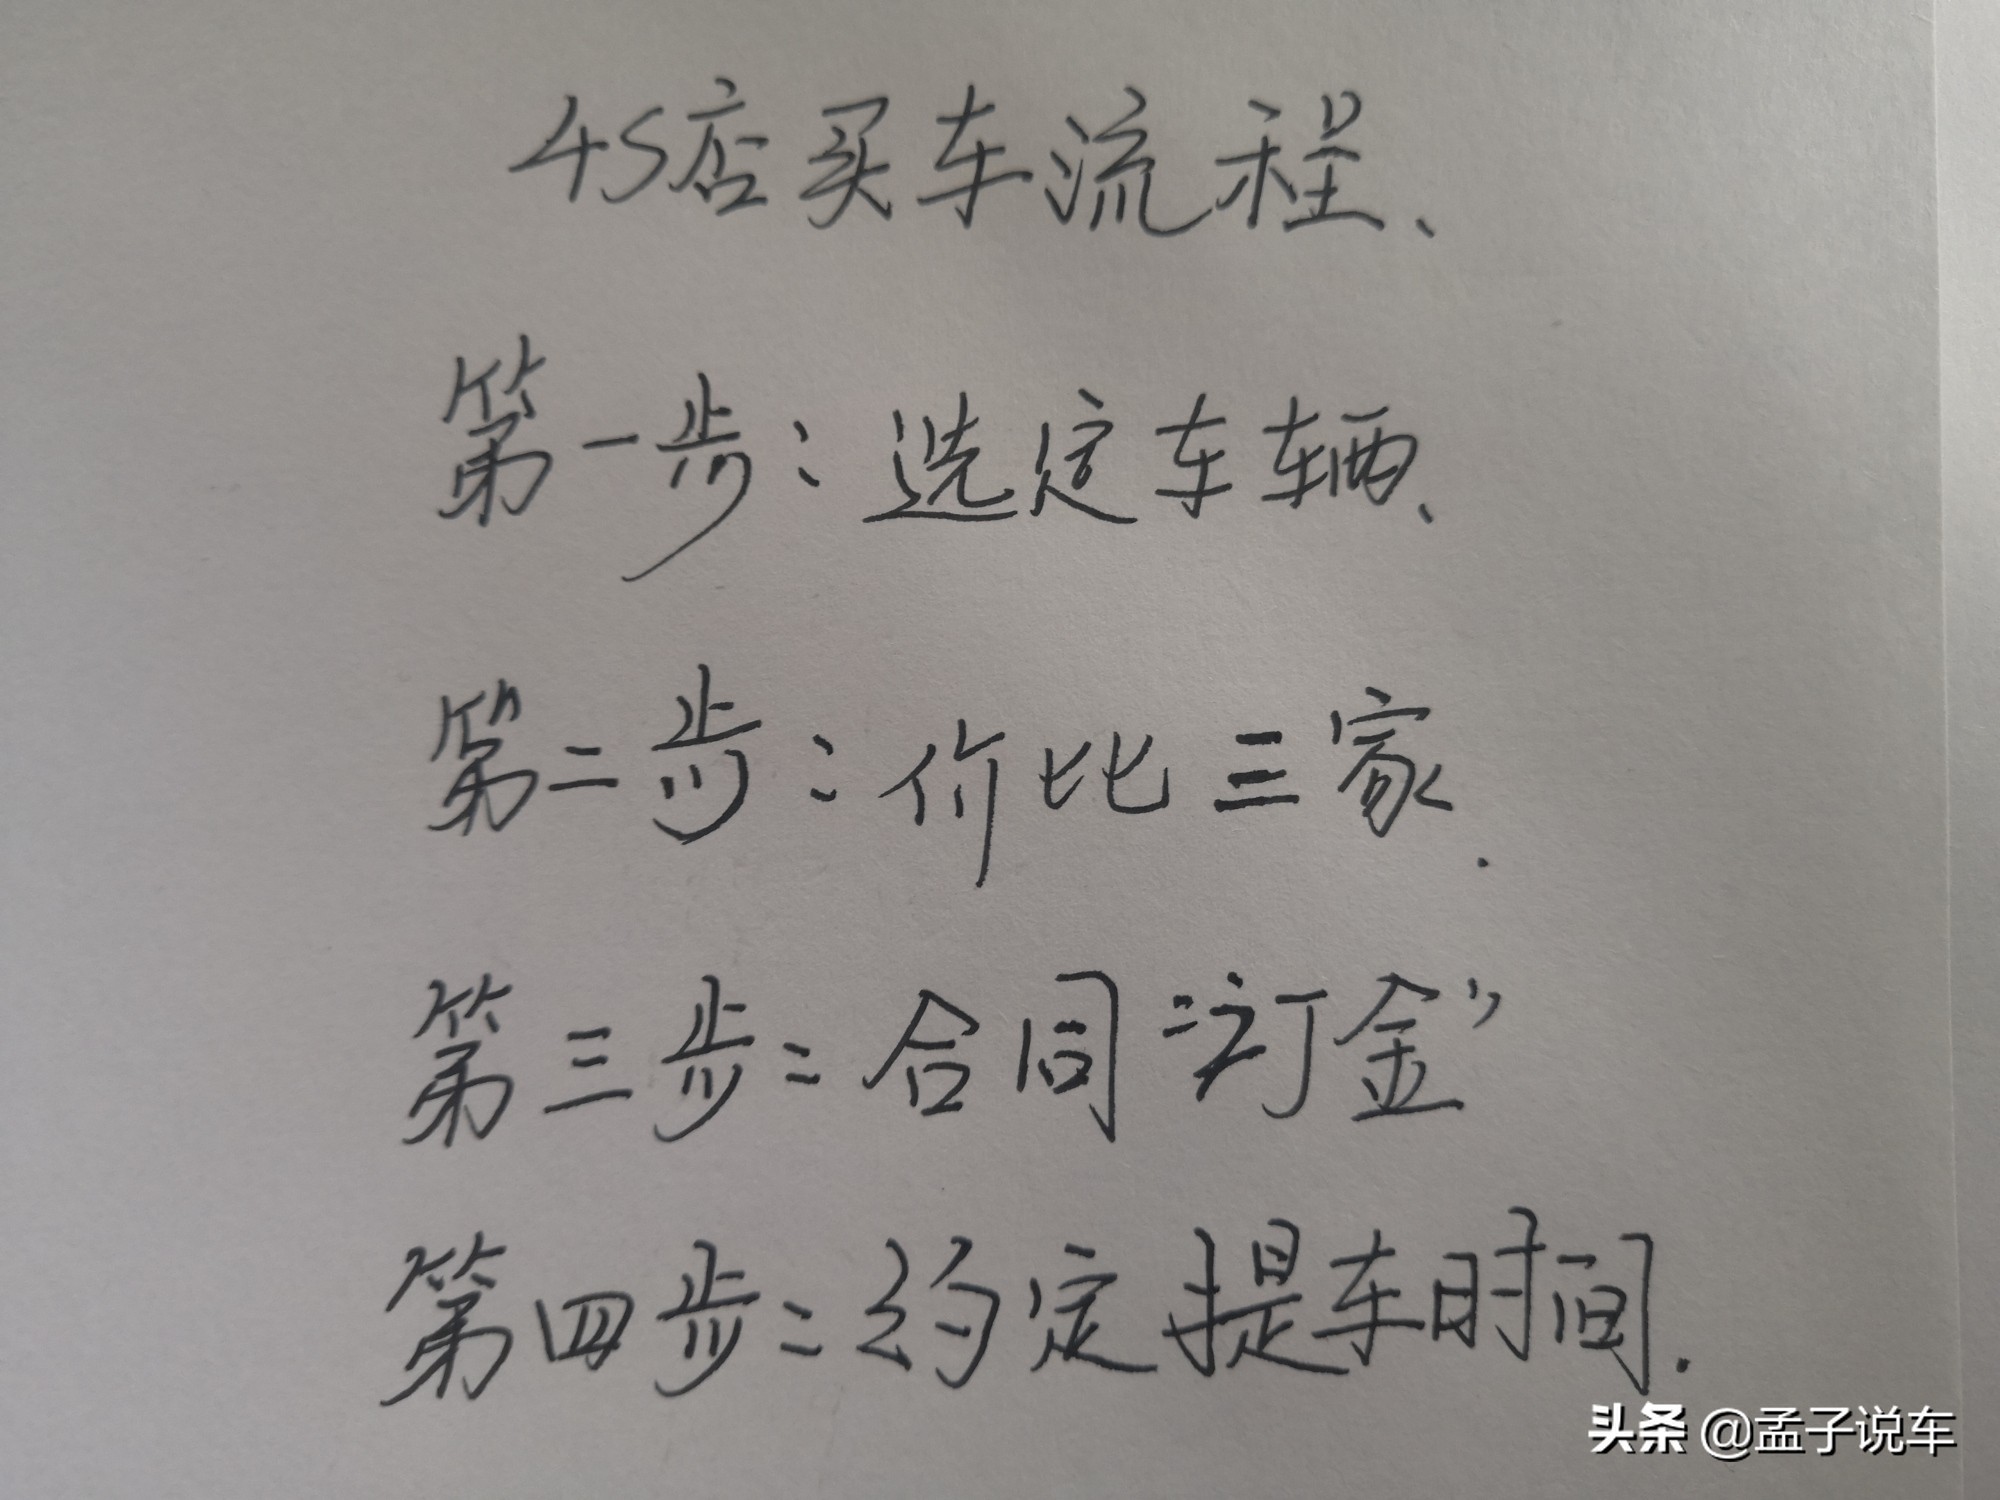 4S店买车流程、
第一步：选定车辆、
第二步：价比三家.
第三步：合同“订金”
第四步：约定提车时间.
头条 @孟子说车